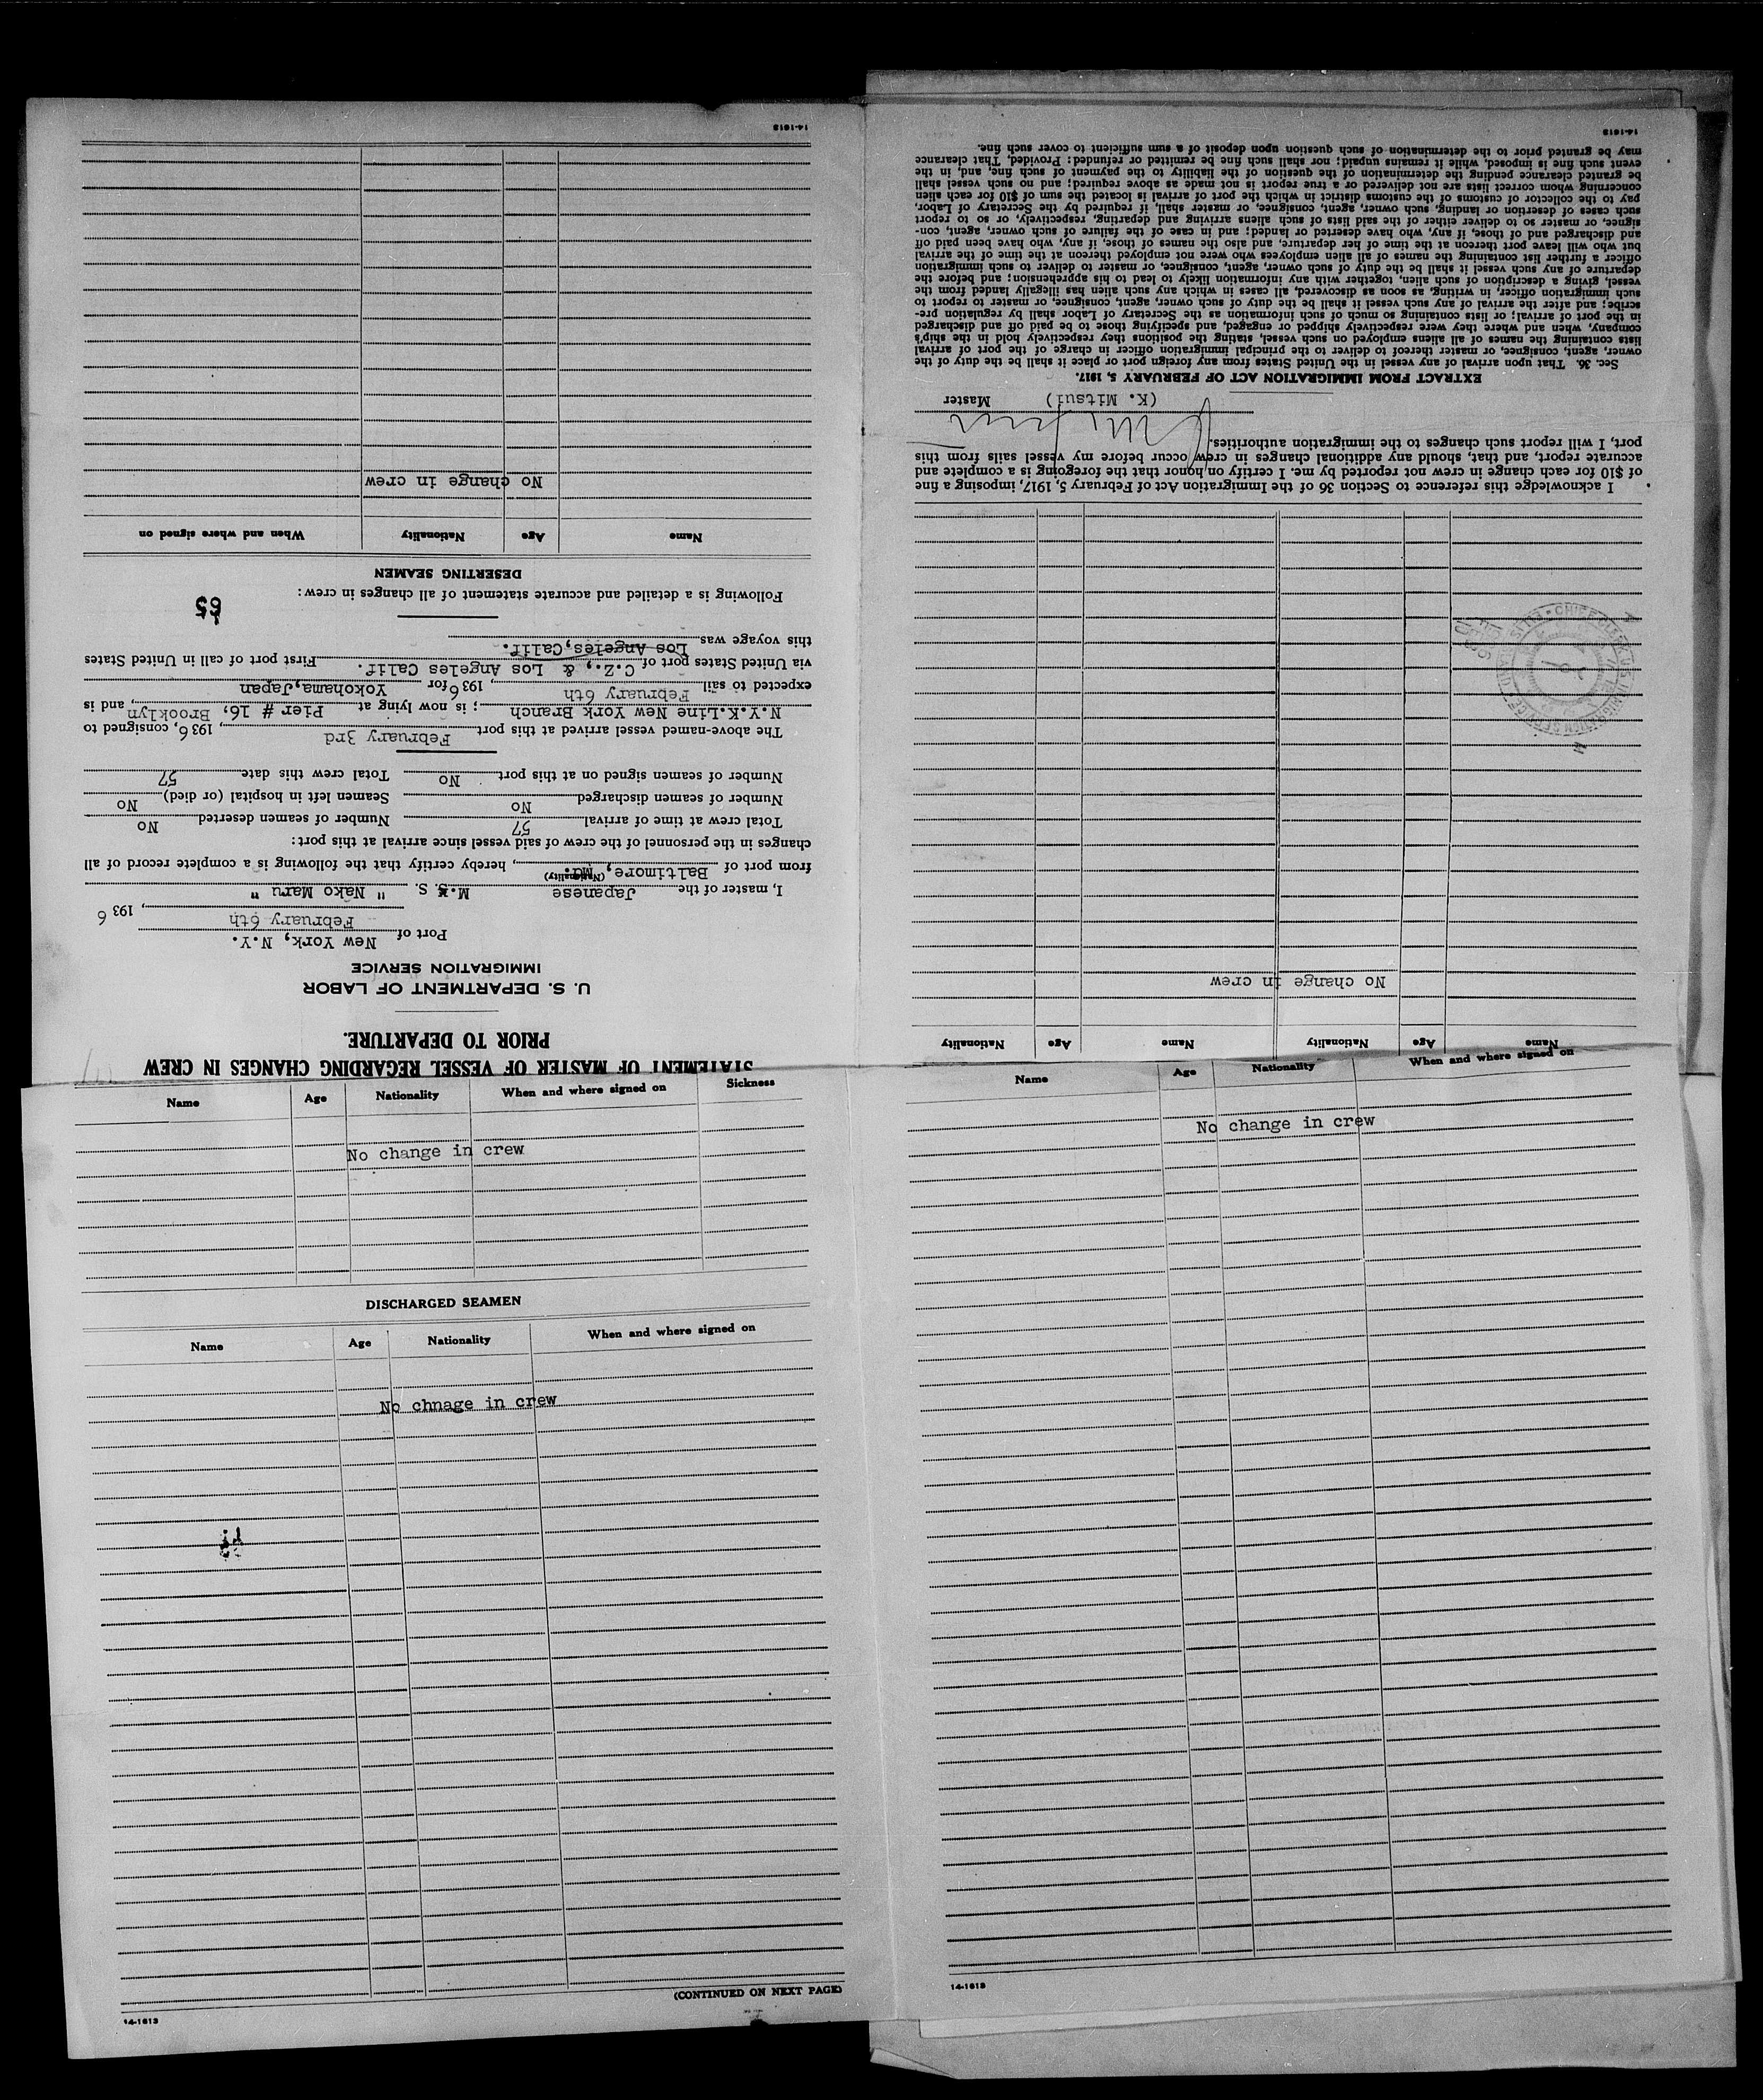 STATEMENT OF MASTER OF VESSEL REGARDING CHANGES IN CREW
PRIOR TO DEPARTURE.
U. S. DEPARTMENT OF LABOR
IMMIGRATION SERVICE
Port of New York, N.Y.
February 6th, 1936
I, master of the Japanese M.S. S. " Nako Maru "
(Nationality)
from port of Baltimore, Md., hereby certify that the following is a complete record of all
changes in the personnel of the crew of said vessel since arrival at this port:
Total crew at time of arrival 57 Number of seamen deserted No
Number of seamen discharged No Seamen left in hospital (or died) No
Number of seamen signed on at this port No Total crew this date 57
The above-named vessel arrived at this port February 3rd, 1936, consigned to
N.Y.K.Line New York Branch; is now lying at Pier # 16, Brooklyn, and is
expected to sail February 6th, 1936 for Yokohama,Japan
via United States port of C.Z., & Los Angeles Calif. First port of call in United States
this voyage was Los Angeles,Calif.
65
Following is a detailed and accurate statement of all changes in crew:
DESERTING SEAMEN
Name Age Nationality When and where signed on
No change in crew
14-1613
Name Age Nationality Name Age Nationality
No change in crew
I acknowledge this reference to Section 36 of the Immigration Act of February 5, 1917, imposing a fine
of $10 for each change in crew not reported by me. I certify on honor that the foregoing is a complete and
accurate report, and that, should any additional changes in crew occur before my vessel sails from this
port, I will report such changes to the immigration authorities.
(K. Mitsui) Master
EXTRACT FROM IMMIGRATION ACT OF FEBRUARY 5, 1917.
Sec. 36. That upon arrival of any vessel in the United States from any foreign port or place it shall be the duty of the
owner, agent, consignee, or master thereof to deliver to the principal immigration officer in charge of the port of arrival
lists containing the names of all aliens employed on such vessel, stating the positions they respectively hold in the ship's
company, when and where they were respectively shipped or engaged, and specifying those to be paid off and discharged
in the port of arrival; or lists containing so much of such information as the Secretary of Labor shall by regulation pre-
scribe; and after the arrival of any such vessel it shall be the duty of such owner, agent, consignee, or master to report to
such immigration officer, in writing, as soon as discovered, all cases in which any such alien has illegally landed from the
vessel, giving a description of such alien, together with any information likely to lead to his apprehension; and before the
departure of any such vessel it shall be the duty of such owner, agent, consignee, or master to deliver to such immigration
officer a further list containing the names of all alien employees who were not employed thereon at the time of the arrival
but who will leave port thereon at the time of her departure, and also the names of those, if any, who have been paid off
and discharged and of those, if any, who have deserted or landed; and in case of the failure of such owner, agent, con-
signee, or master so to deliver either of the said lists of such aliens arriving and departing, respectively, or so to report
such cases of desertion or landing, such owner, agent, consignee, or master shall, if required by the Secretary of Labor,
pay to the collector of customs of the customs district in which the port of arrival is located the sum of $10 for each alien
concerning whom correct lists are not delivered or a true report is not made as above required; and no such vessel shall
be granted clearance pending the determination of the question of the liability to the payment of such fine, and, in the
event such fine is imposed, while it remains unpaid; nor shall such fine be remitted or refunded: Provided, That clearance
may be granted prior to the determination of such question upon deposit of a sum sufficient to cover such fine.
14-1613
Name Age Nationality When and where signed on Sickness
No change in crew
DISCHARGED SEAMEN
Name Age Nationality When and where signed on
No chnage in crew
(CONTINUED ON NEXT PAGE)
14-1613
Name Age Nationality When and where signed on
No change in crew
14-1613